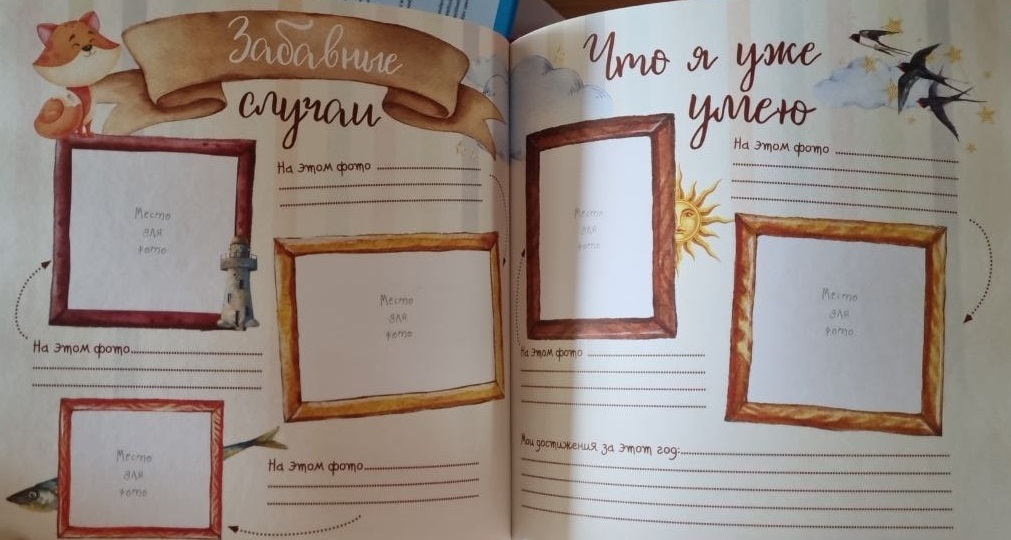 Забавные
случаи
Место
для
фото
На этом фото
На этом фото
Место
для
фото
Место
для
фото
На этом фото
Что я уже
умею
Место
для
фото
На этом фото
На этом фото
Место
для
фото
Мои достижения за этот год: